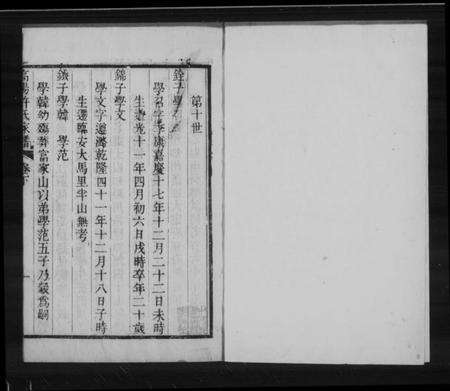 第十世
鏜子學
學召字孝康嘉慶十七年十二月二十二日未時
生道光十一年四月初六日戌時卒年二十歲
錦子學文
學文字道濟乾隆四十一年十二月十八日子時
生遷臨安大馬里半山無考
鐖子學韓 學范
學韓幼殤葬富家山以弟學范五子乃毅為嗣
高陽許氏家譜 卷下